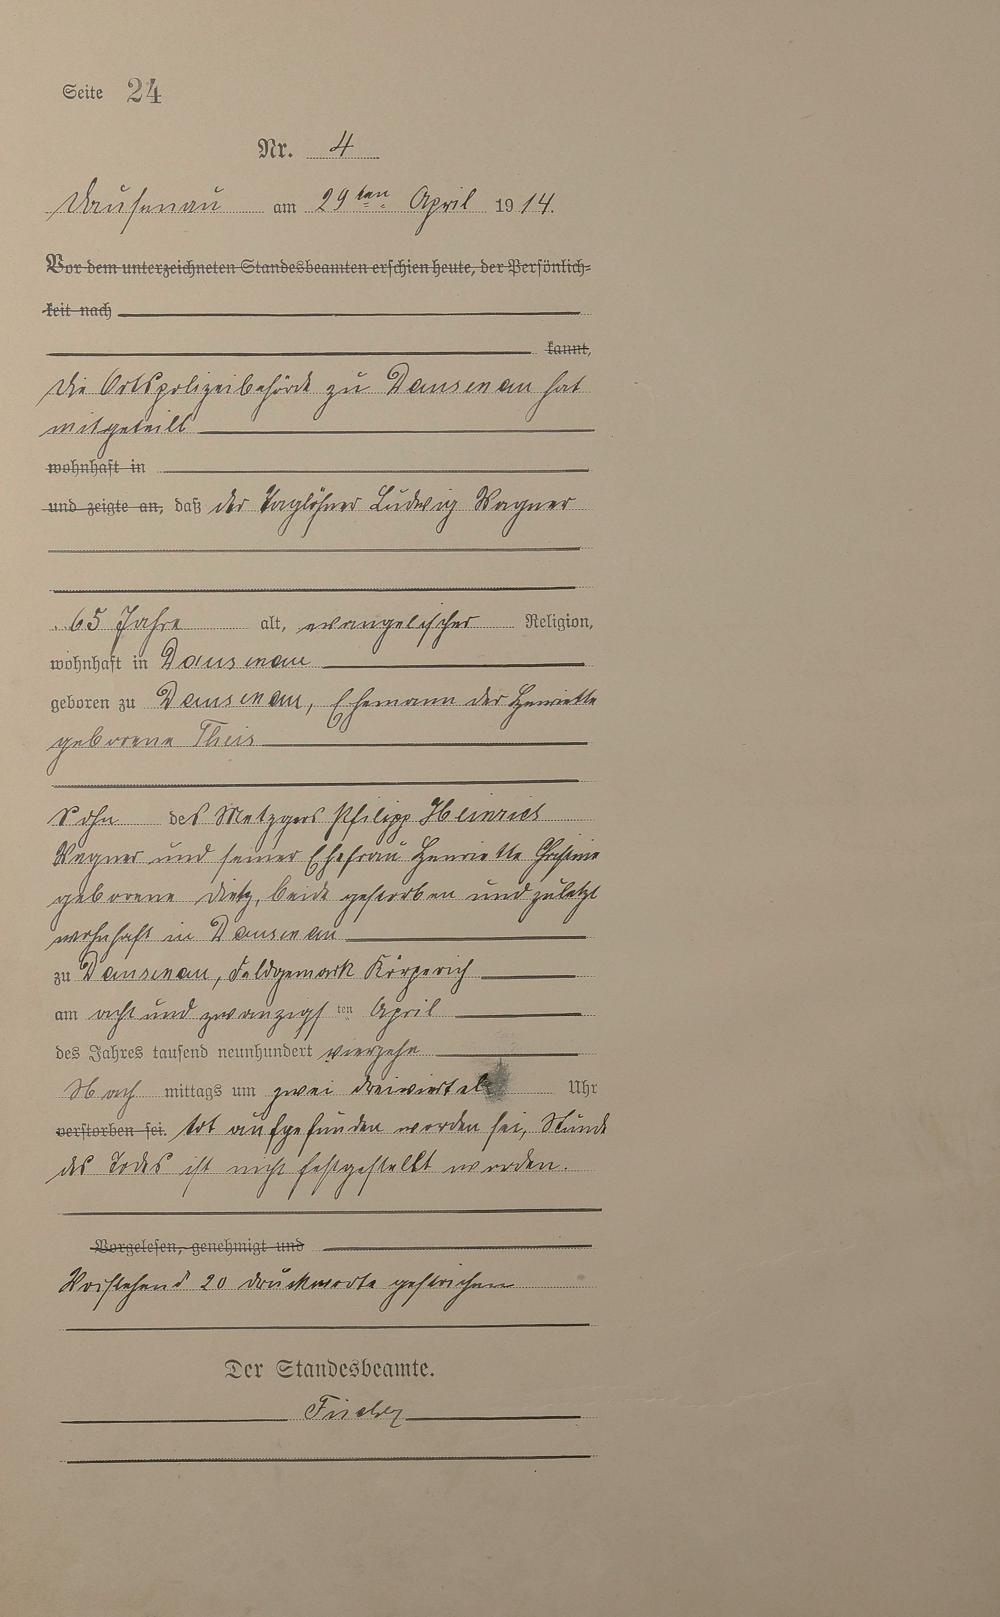 Seite 24
Nr. 4
Dausenau am 29ten April 1914.
Vor dem unterzeichneten Standesbeamten erschien heute, der Persönlich=
keit nach
kannt,
Die Ortspolizeibehörde zu Dausenau hat
mitgeteilt
wohnhaft in
und zeigte an, daß der Taglöhner Ludwig Wagner
65 Jahre alt, evangelischer Religion,
wohnhaft in Dausenau
geboren zu Dausenau, Ehemann der Henriette
geborene Theis
Sohn des Metzgers Philipp Heinrich
Wagner und seiner Ehefrau Henriette Christine
geborene Dietz, beide gestorben und zuletzt
wohnhaft in Dausenau
zu Dausenau, Feldgemark
am acht und zwanzigsten April
des Jahres tausend neunhundert vierzehn
Nach mittags um zwei dreiviertel Uhr
verstorben sei. tot aufgefunden worden sei, Stunde
des Todes ist nicht festgestellt worden.
Vorgelesen, genehmigt und
Vorstehend 20 Druckworte gestrichen
Der Standesbeamte.